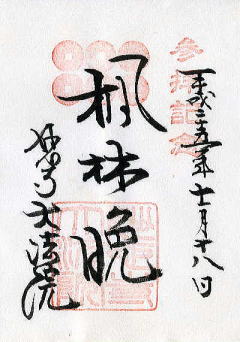 参拝記念
平成二十五年十一月十八日
楓林晩
妙心寺大法院